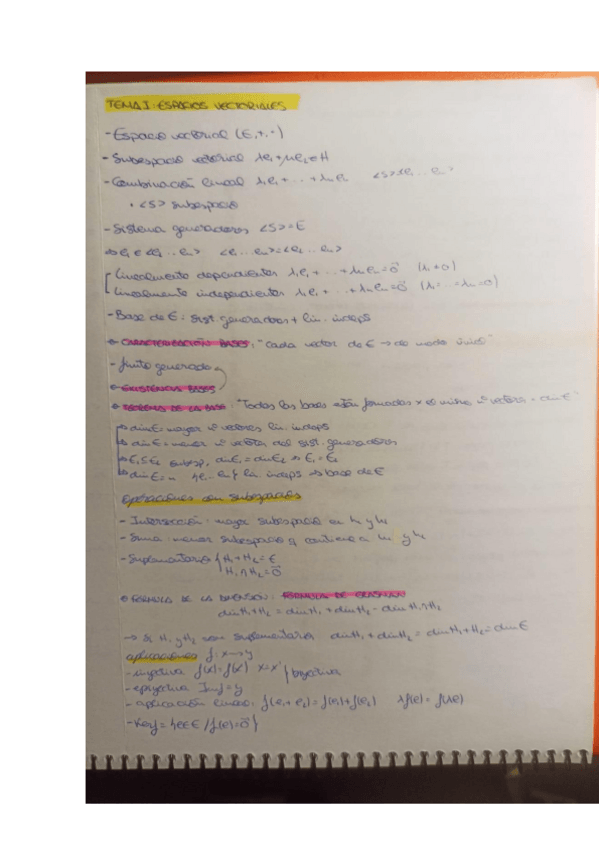 TEMA I: ESPACIOS VECTORIALES
- Espacio vectorial (E, +, ·)
- Subespacio vectorial λe₁+μe₂∈H
- Combinación lineal λ₁e₁+...+λₙeₙ
· <S> subespacio
- Sistema generadores <S>=E
linealmente dependientes λ₁e₁+...+λₙeₙ=0⃗ (λᵢ≠0)
linealmente independientes λ₁e₁+...+λₙeₙ=0⃗ (λ₁=...=λₙ=0)
- Base de E: sist. generadores + lin. indeps
CARACTERIZACIÓN BASES: "Cada vector de E → de modo único"
- finito generado
EXISTENCIA BASES
TEOREMA DE LA BASE: "Todas las bases están formadas x el mismo nº vectores = dim E"
dim E = mayor nº vectores lin. indeps
dim E = menor nº vectores del sist. generadores
E₁⊆E₂ subesp, dim E₁=dim E₂ ⇒ E₁=E₂
dim E=n {e₁...eₙ} lin indeps ⇒ base de E
operaciones con subespacios
- Intersección: mayor subespacio en H₁ y H₂
- Suma: menor subespacio q contiene a H₁ y H₂
- Suplementario { H₁+H₂=E
H₁∩H₂=0⃗
FÓRMULA DE LA DIMENSIÓN: FÓRMULA DE GRASSMANN
dim H₁+H₂ = dim H₁ + dim H₂ - dim H₁∩H₂
→ Si H₁ y H₂ son suplementarios dim H₁ + dim H₂ = dim H₁+H₂ = dim E
aplicaciones f: x→y
- inyectiva f(x)=f(x') x=x' } biyectiva
- epiyectiva Im f = y
- aplicación lineal: f(e₁+e₂)=f(e₁)+f(e₂) λf(e)=f(λe)
- Ker f={e∈E / f(e)=0⃗}